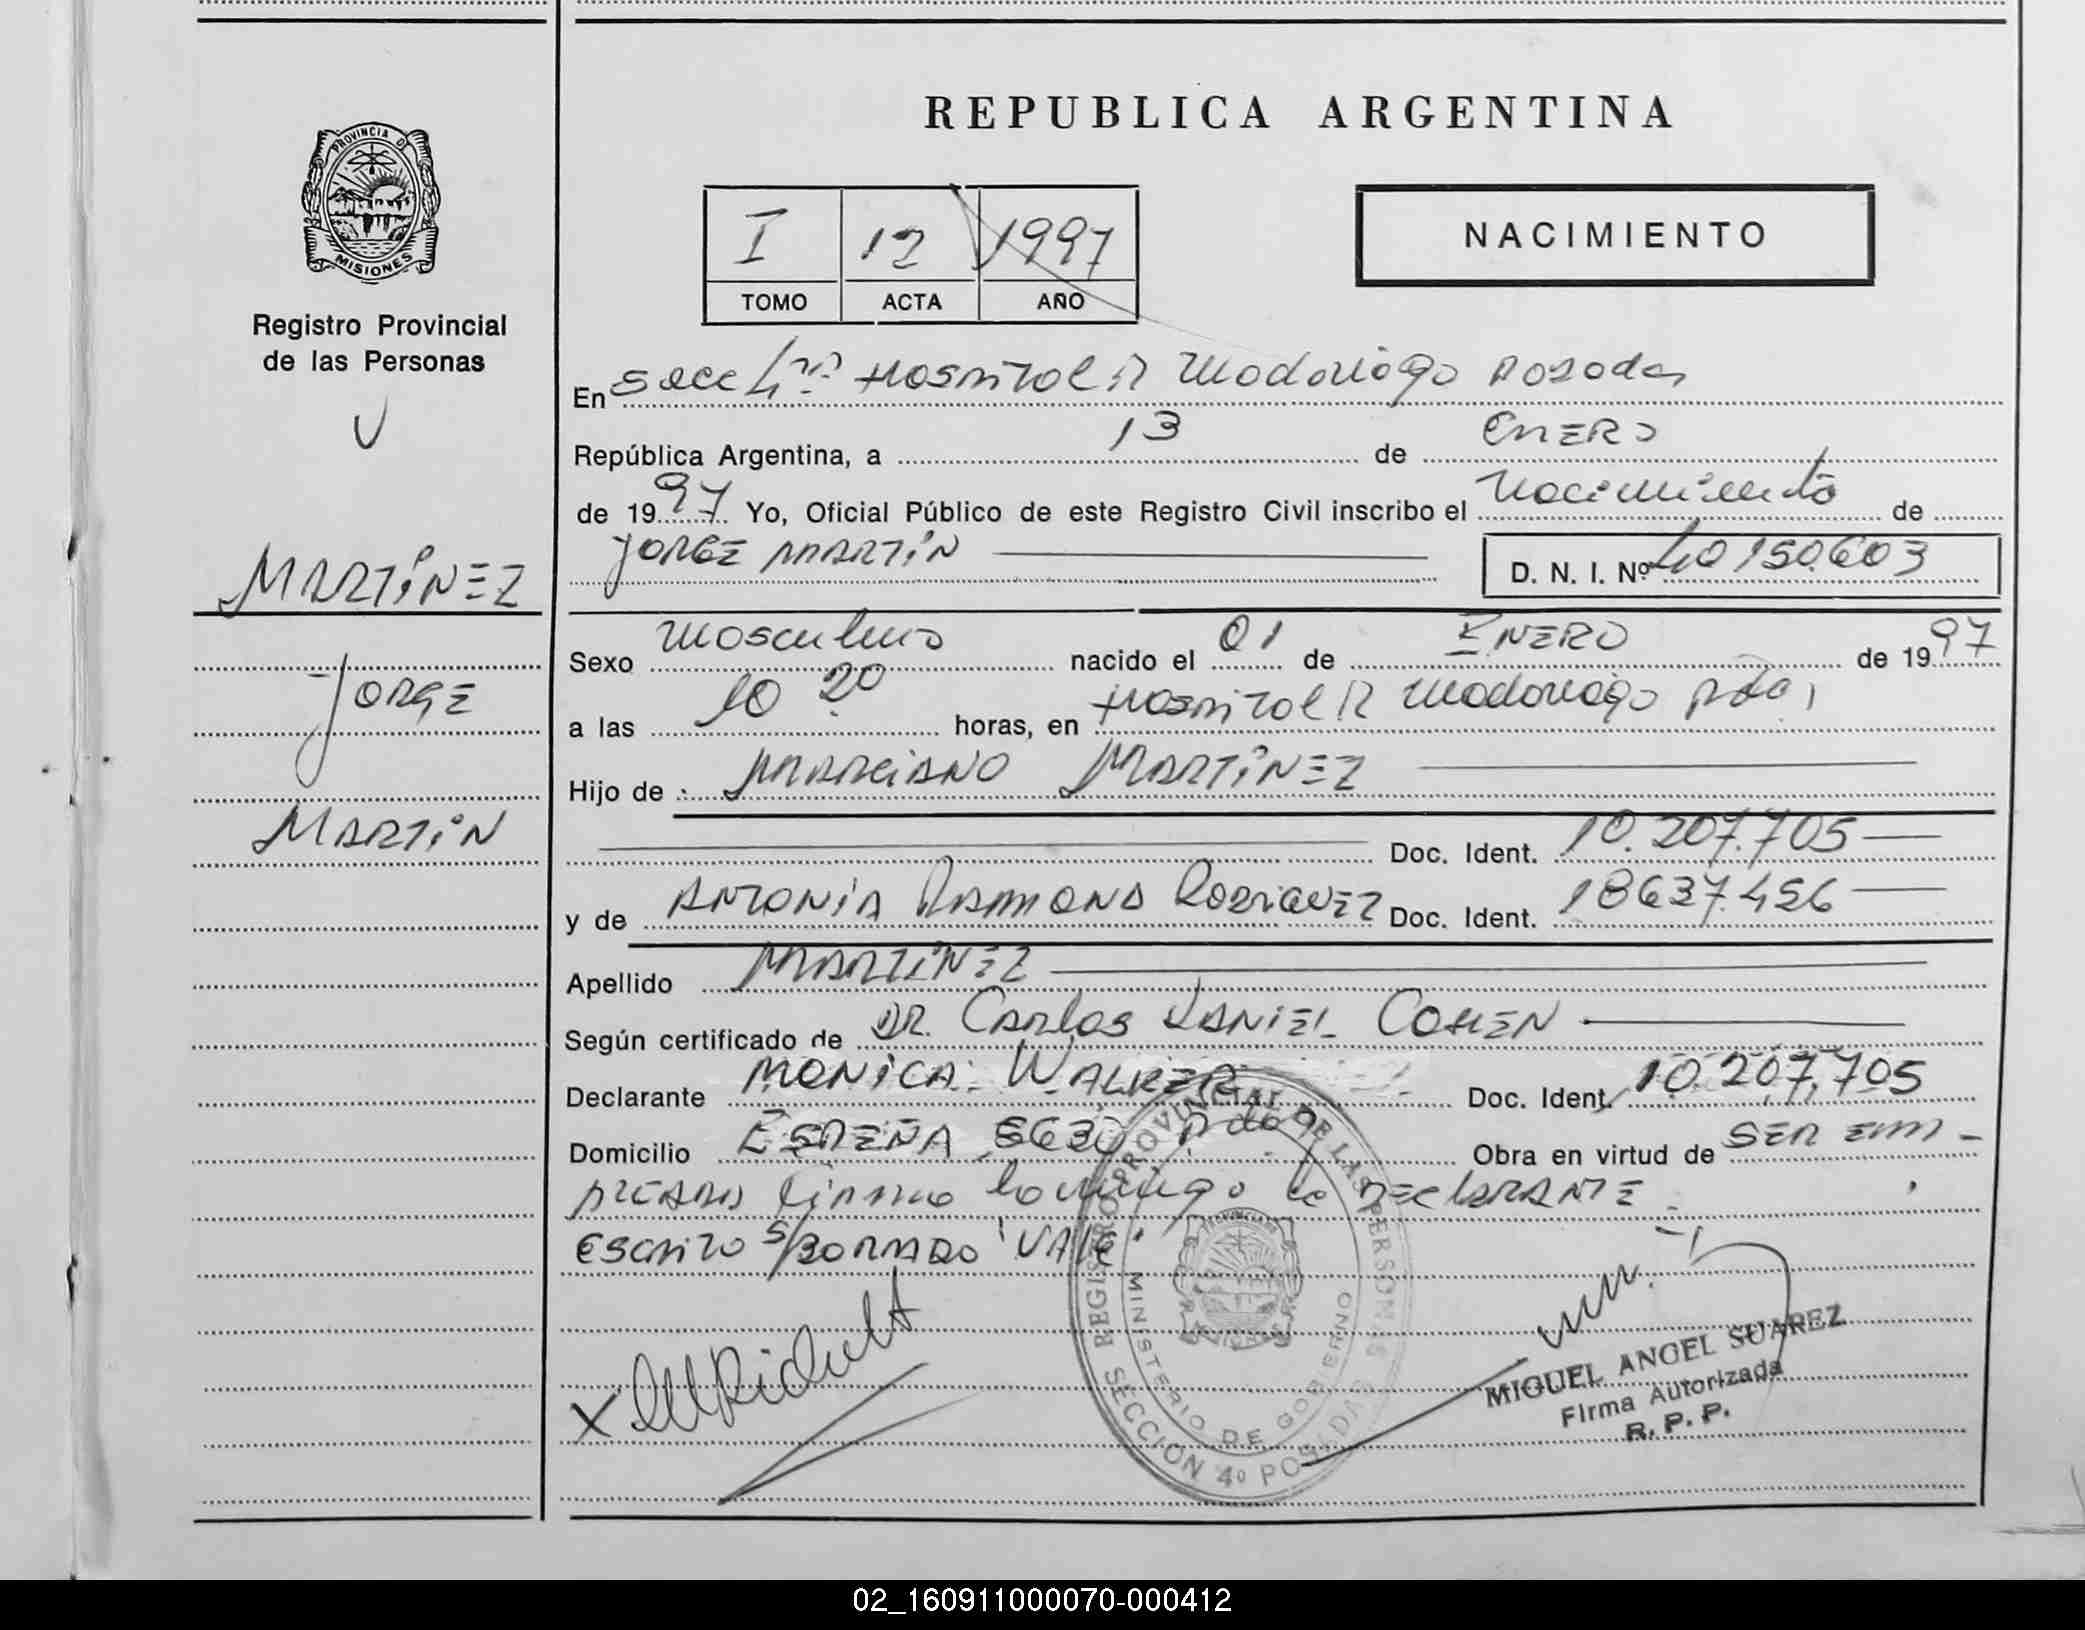 REPUBLICA ARGENTINA
PROVINCIA DE
MISIONES
Registro Provincial
de las Personas
I 12 1997
TOMO ACTA AÑO
NACIMIENTO
En Secc 4ta Hospital R Madariaga Posadas
República Argentina, a 13 de ENERO
de 1997 Yo, Oficial Público de este Registro Civil inscribo el Nacimiento de
JORGE MARTÍN D. N. I. Nº 40150.603
MARTÍNEZ
JORGE
MARTÍN
Sexo Masculino nacido el 01 de ENERO de 1997
a las 10 20 horas, en Hospital R Madariaga Pdas
Hijo de : MARCIANO MARTÍNEZ
Doc. Ident. 10.207.705
y de ANTONIA RAMONA RODRIGUEZ Doc. Ident. 18637.456
Apellido MARTÍNEZ
Según certificado de DR. CARLOS DANIEL COHEN
Declarante MONICA WALKER Doc. Ident. 10.207.705
Domicilio Pdas Obra en virtud de SER EM-
PLEADA la DECLARANTE
ESCRITO S/BORRADO "VALE"
REGISTRO PROVINCIAL DE LAS PERSONAS
MINISTERIO DE GOBIERNO
SECCION 4º POSADAS
MIGUEL ANGEL SUAREZ
Firma Autorizada
R. P. P.
02_160911000070-000412